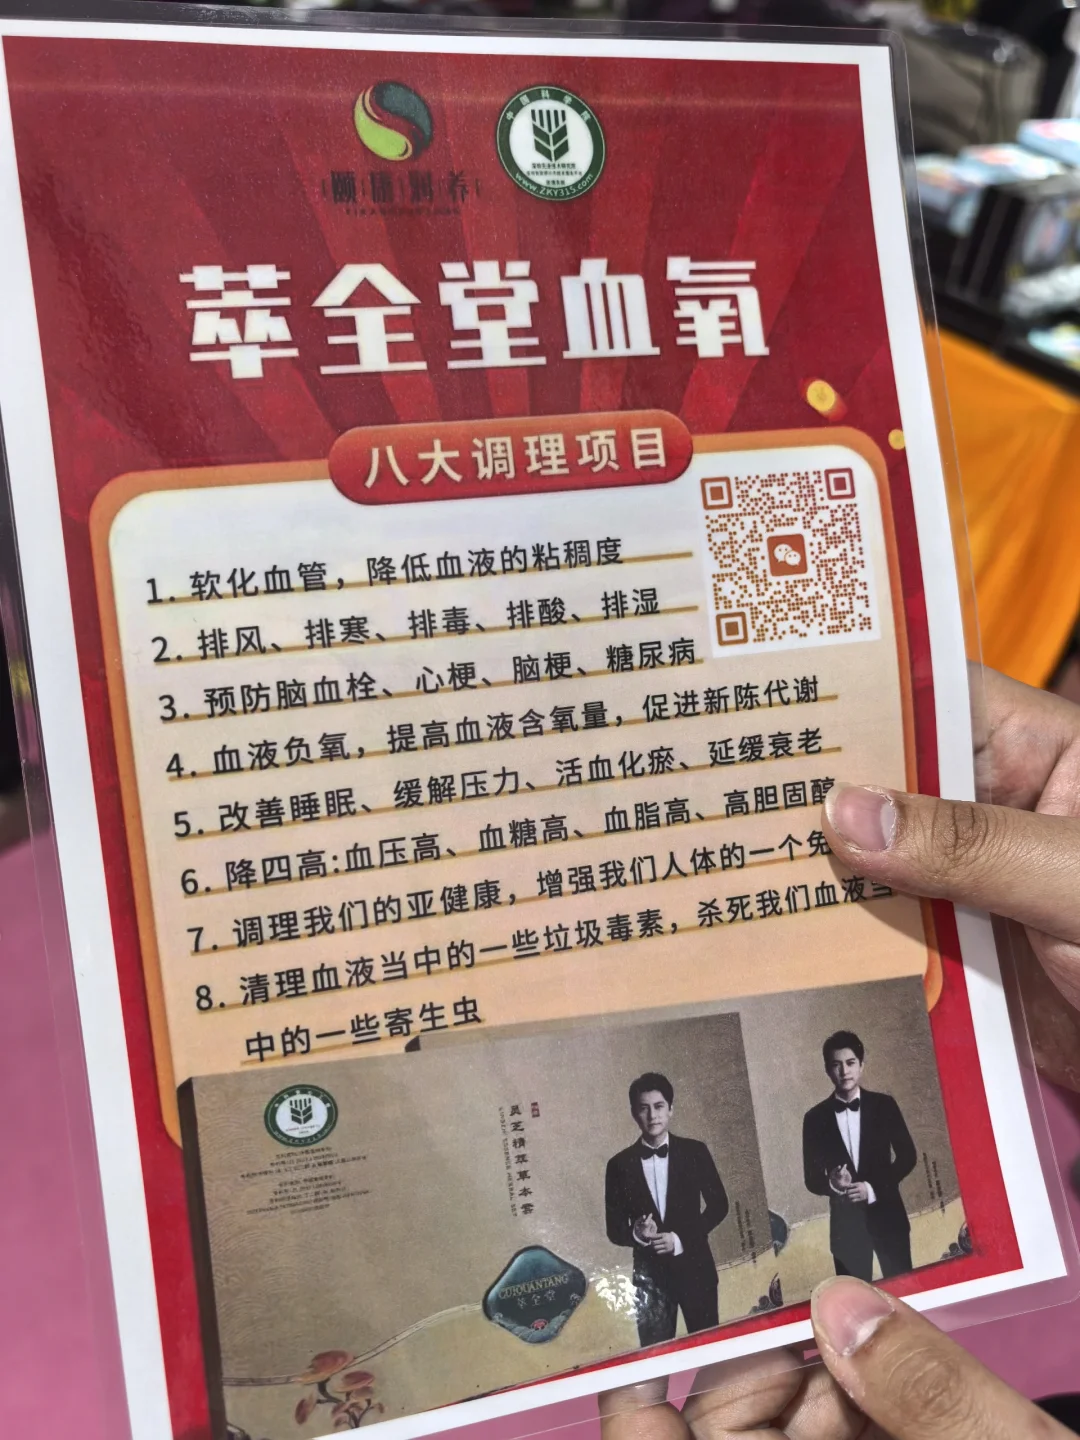 中国科学院
www.ZKY315.com
萃全堂血氧
八大调理项目
1. 软化血管，降低血液的粘稠度
2. 排风、排寒、排毒、排酸、排湿
3. 预防脑血栓、心梗、脑梗、糖尿病
4. 血液负氧，提高血液含氧量，促进新陈代谢
5. 改善睡眠、缓解压力、活血化瘀、延缓衰老
6. 降四高:血压高、血糖高、血脂高、高胆固醇
7. 调理我们的亚健康，增强我们人体的一个免
8. 清理血液当中的一些垃圾毒素，杀死我们血液当
中的一些寄生虫
灵芝精萃草本
CUIQUANTANG
萃全堂